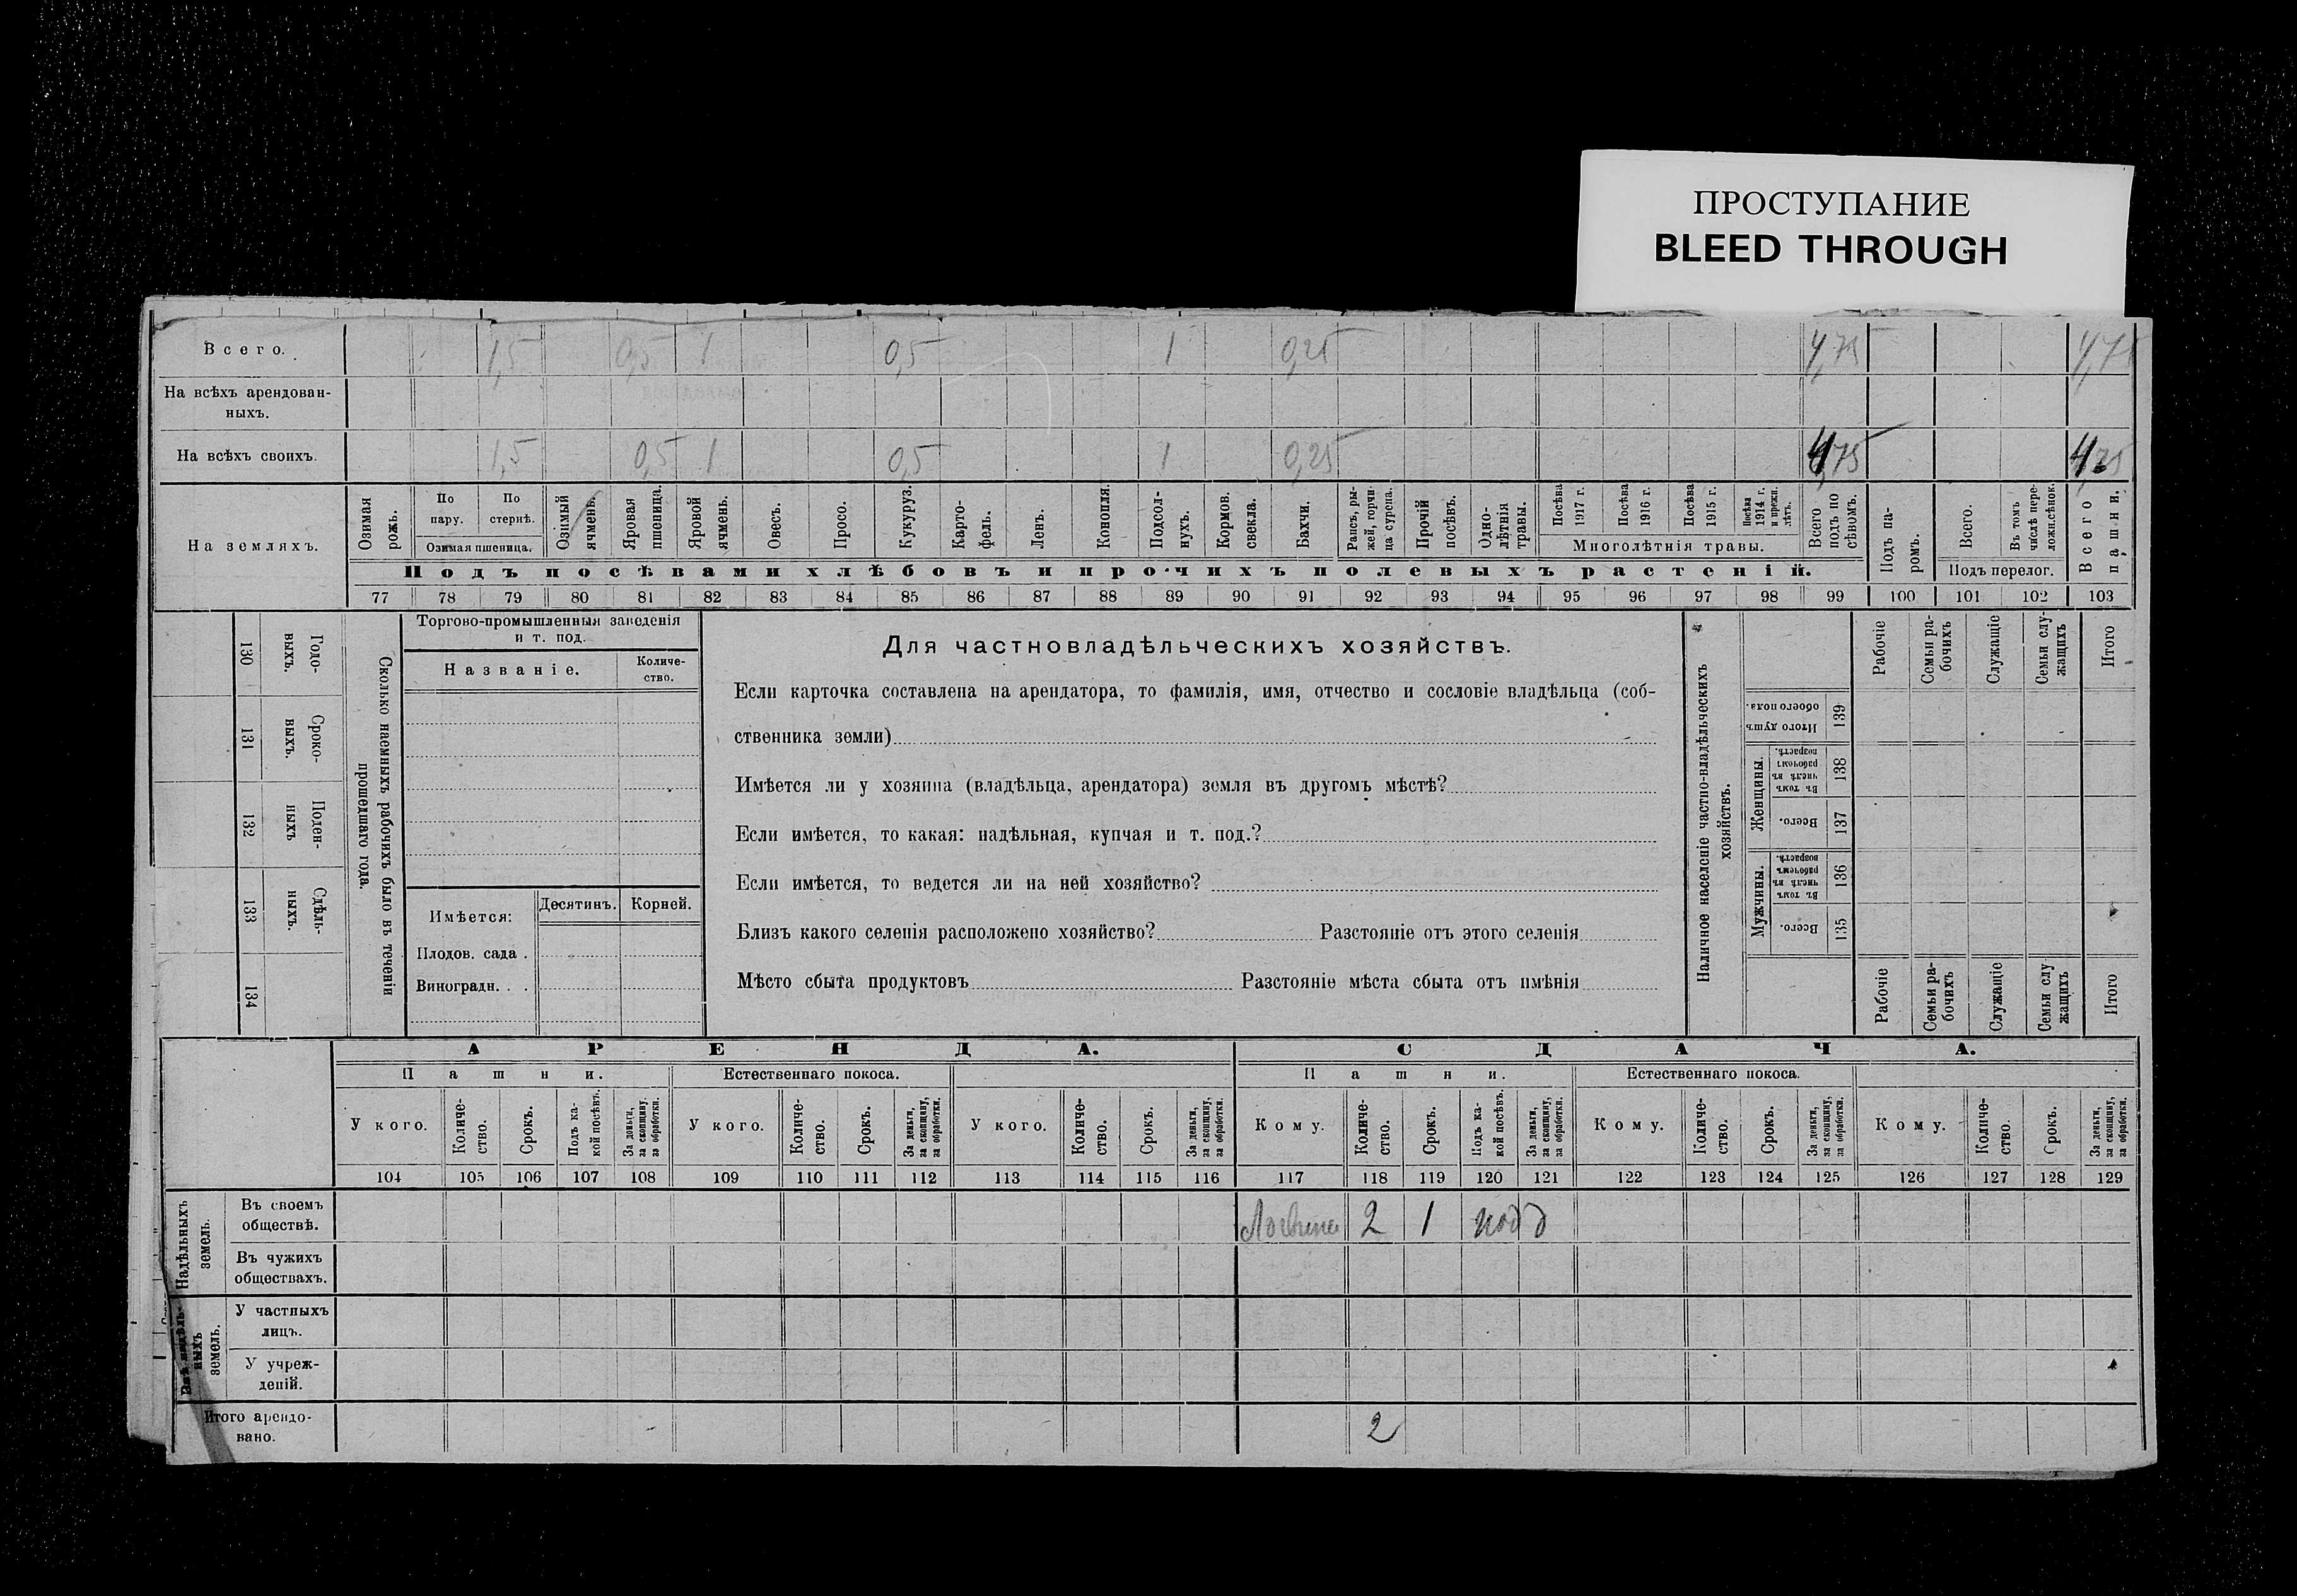 ПРОСТУПАНИЕ
BLEED THROUGH
Всего. 1,5 0,5 1 0,5 1 0,25 4,75 4,75
На всѣхъ арендован-
ныхъ.
На всѣхъ своихъ. 1,5 0,5 1 0,5 1 0,25 4,75 4,75
На земляхъ.
Озимая рожь.
По пару.
По стернѣ.
Озимая пшеница.
Озимый ячмень.
Яровая пшеница.
Яровой ячмень.
Овесъ.
Просо.
Кукуруз.
Карто-
фель.
Ленъ.
Конопля.
Подсол-
нухъ.
Кормов.
свекла.
Бахчи.
Рапсъ, ры-
жей, горчи-
ца сурепа.
Прочій
посѣвъ.
Одно-
лѣтнія
травы.
Посѣва
1917 г.
Посѣва
1916 г.
Посѣва
1915 г.
Посѣва
1914 г.
и прежн.
лѣтъ.
Многолѣтнія травы.
Всего
подъ по
сѣвомъ.
Подъ па-
ромъ.
Всего.
Въ томъ
числѣ пере-
ложн.сѣнок.
Подъ перелог.
Всего
пашни.
Подъ посѣвами хлѣбовъ и прочихъ полевыхъ растеній.
77 78 79 80 81 82 83 84 85 86 87 88 89 90 91 92 93 94 95 96 97 98 99 100 101 102 103
130 Годо-
выхъ.
131 Сроко-
выхъ.
132 Поден-
ныхъ
133 Сдѣль-
ныхъ.
134
Сколько наемныхъ рабочихъ было въ теченіи
прошедшаго года.
Торгово-промышленныя заведенія
и т. под.
Названіе.
Количе-
ство.
Имѣется:
Десятинъ. Корней.
Плодов. сада .
Виноградн. . .
Для частновладѣльческихъ хозяйствъ.
Если карточка составлена на арендатора, то фамилія, имя, отчество и сословіе владѣльца (соб-
ственника земли)
Имѣется ли у хозяина (владѣльца, арендатора) земля въ другомъ мѣстѣ?
Если имѣется, то какая: надѣльная, купчая и т. под.?
Если имѣется, то ведется ли на ней хозяйство?
Близъ какого селенія расположено хозяйство? Разстояніе отъ этого селенія
Мѣсто сбыта продуктовъ Разстояніе мѣста сбыта отъ имѣнія
Наличное населеніе частно-владѣльческихъ
хозяйствъ.
Итого душъ
обоего пола.
139
Женщины.
Въ томъ
числѣ въ
рабочемъ
возрастѣ.
138
Всего.
137
Мужчины.
Въ томъ
числѣ въ
рабочемъ
возрастѣ.
136
Всего.
135
Рабочіе
Семьи ра-
бочихъ
Служащіе
Семьи слу-
жащихъ
Итого
Рабочіе
Семьи ра-
бочихъ
Служащіе
Семьи слу
жащихъ
Итого
АРЕНДА. СДАЧА.
Пашни. Естественнаго покоса. Пашни. Естественнаго покоса.
У кого.
Количе-
ство.
Срокъ.
Подъ ка-
кой посѣвъ.
За деньги,
за скопщину,
за обработки.
У кого.
Количе-
ство.
Срокъ.
За деньги,
за скопщину,
за обработки.
У кого.
Количе-
ство.
Срокъ.
За деньги,
за скопщину,
за обработки.
Кому.
Количе-
ство.
Срокъ.
Подъ ка-
кой посѣвъ.
За деньги,
за скопщину,
за обработки.
Кому.
Количе-
ство.
Срокъ.
За деньги,
за скопщину,
за обработки.
Кому.
Количе-
ство.
Срокъ.
За деньги,
за скопщину,
за обработки.
104 105 106 107 108 109 110 111 112 113 114 115 116 117 118 119 120 121 122 123 124 125 126 127 128 129
Надѣльныхъ
земель.
Въ своемъ
обществѣ.
2 1
Въ чужихъ
обществахъ.
Внѣ надѣль-
ныхъ
земель.
У частныхъ
лицъ.
У учреж-
деній.
Итого арендо-
вано.
2